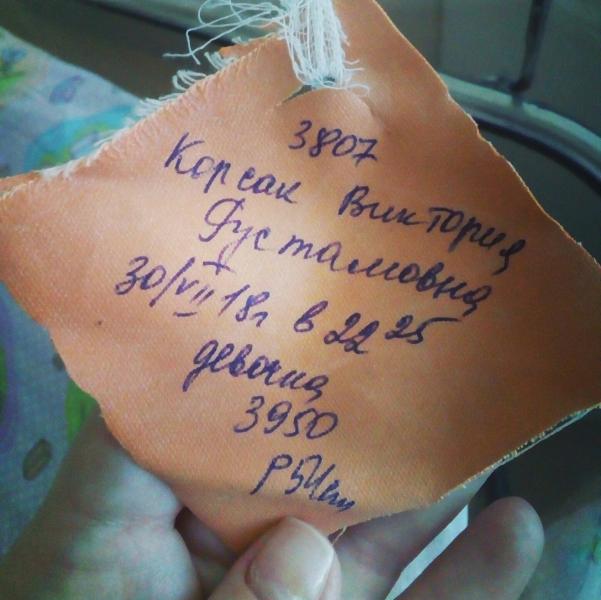 3807
Корсак Виктория
Рустамовна
30/VII 18г в 22 25
девочка
3950
р 54см